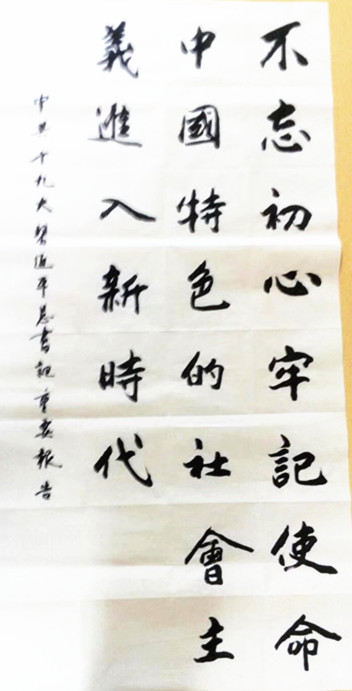 不忘初心牢記使命
中國特色的社會主
義進入新時代
中共十九大習近平总書記重要報告